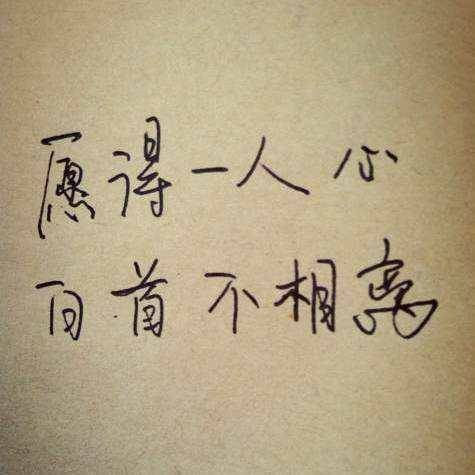 愿得一人心
百首不相离